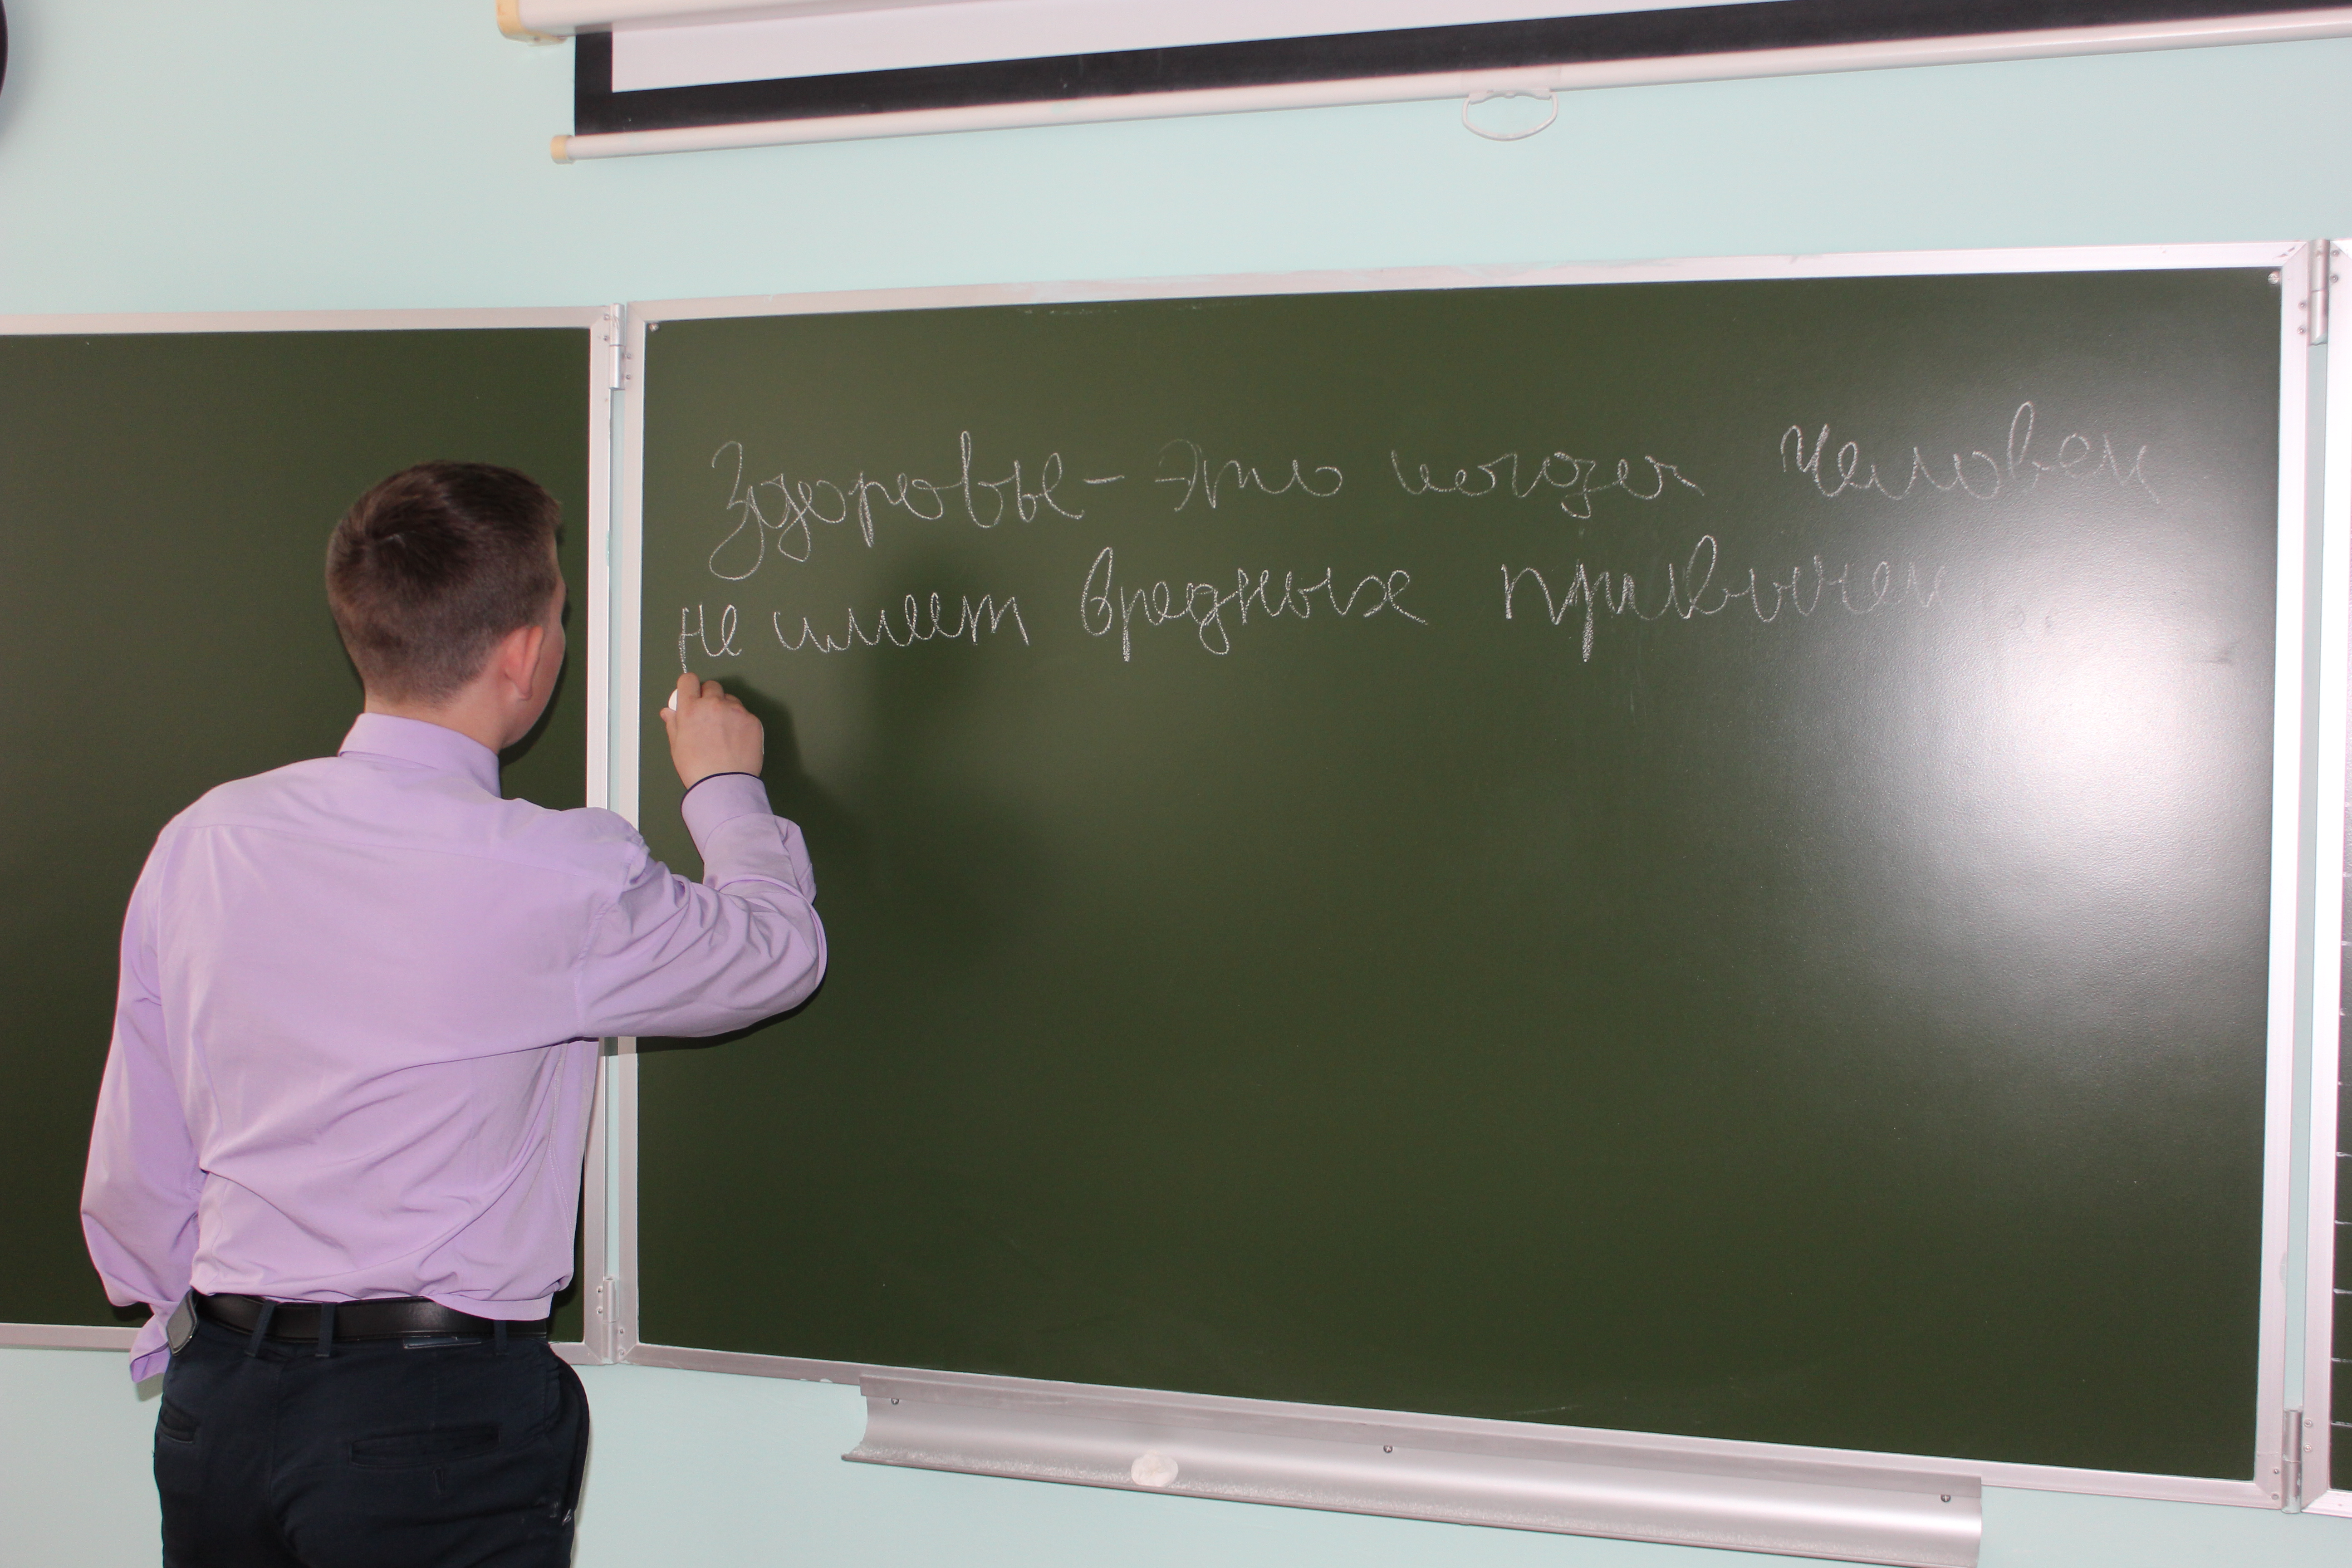 Здоровье - это когда человек
не имеет вредных привычек